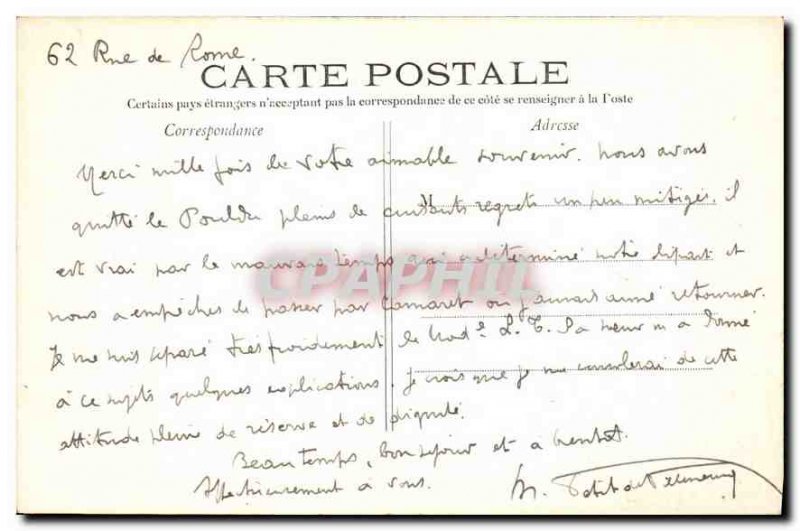 62 Rue de Rome.
CARTE POSTALE
Certains pays étrangers n'acceptant pas la correspondance de ce côté se renseigner à la Poste
Correspondance
Adresse
Merci mille fois de votre aimable souvenir. Nous avons
quitté le Pouldu pleins de cuisants regrets un peu mitigés, il
M
est vrai par le mauvais temps qui a déterminé notre départ et
CPAPHIL
nous a empêchés de passer par Camaret où j'aurais aimé retourner.
Je me suis séparé très froidement de L. T. Sa sœur m'a donné
à ce sujet quelques explications. Je crois que je me consolerai de cette
attitude pleine de réserve et de dignité.
Beau temps, bon séjour et à bientôt.
Affectueusement à vous.